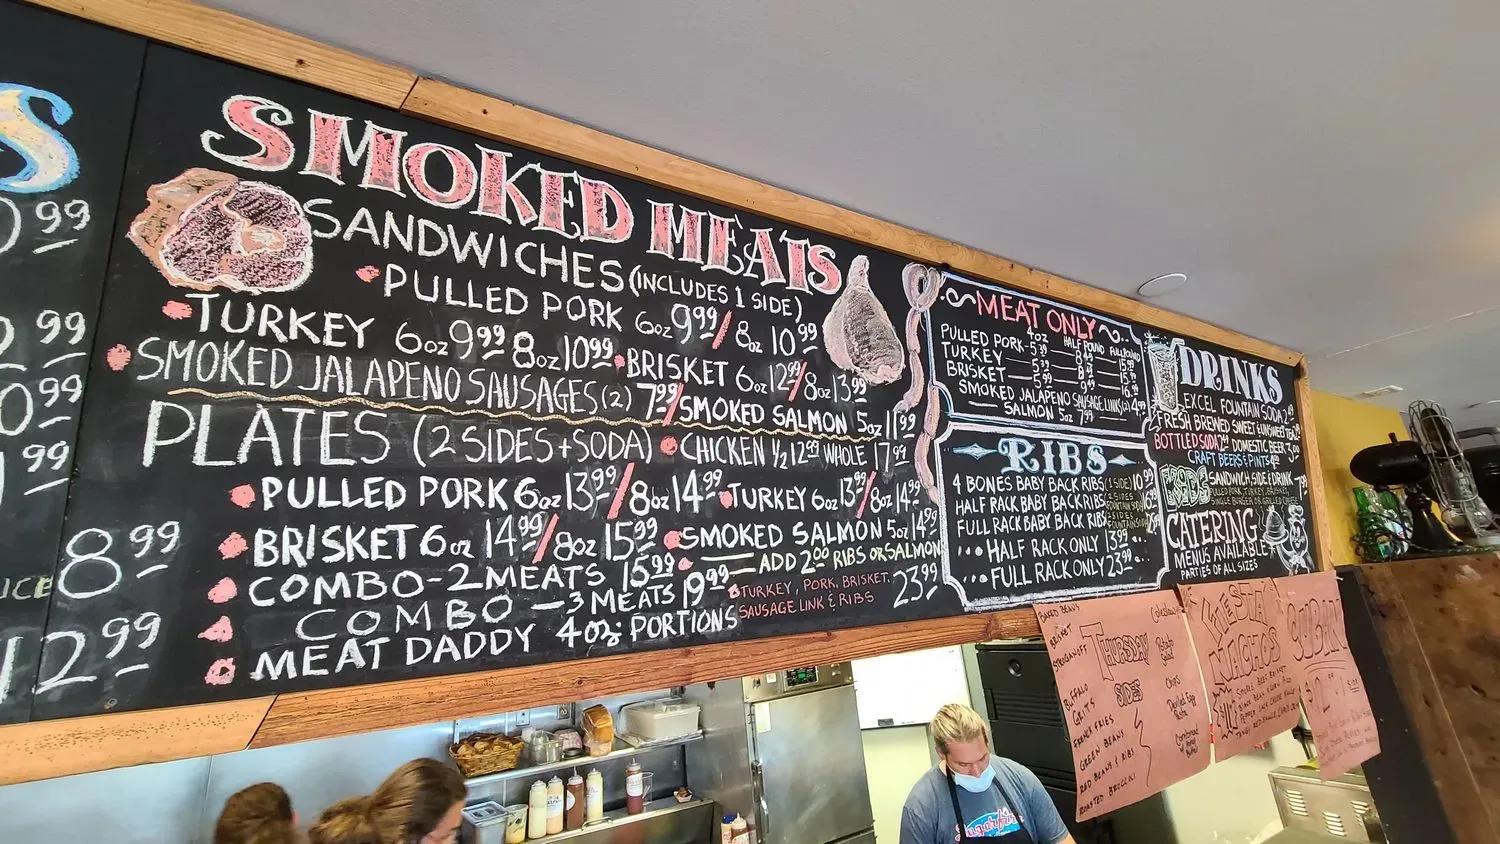 S
99
99
99
99
8 99
12 99
SMOKED MEATS
SANDWICHES (INCLUDES 1 SIDE)
PULLED PORK 6oz 9.99/8oz 10.99
TURKEY 6oz 9.99 8oz 10.99
BRISKET 6oz 12.99/8oz 13.99
SMOKED JALAPENO SAUSAGES (2) 7.99/SMOKED SALMON 5oz 11.99
PLATES (2 SIDES + SODA)
CHICKEN 1/2 12.99 WHOLE 17.99
PULLED PORK 6oz 13.99/8oz 14.99
TURKEY 6oz 13.99/8oz 14.99
BRISKET 6oz 14.99/8oz 15.99
SMOKED SALMON 5oz 14.99
COMBO - 2 MEATS 15.99
ADD 2.00 RIBS OR SALMON
COMBO - 3 MEATS 19.99
MEAT DADDY 4oz PORTIONS
TURKEY, PORK, BRISKET,
SAUSAGE LINK & RIBS
23.99
MEAT ONLY
4oz HALF POUND FULL POUND
PULLED PORK
TURKEY
BRISKET
SMOKED JALAPENO SAUSAGE LINKS (2) 4.99
SALMON 5oz 7.99
RIBS
4 BONES BABY BACK RIBS (1 SIDE) 10.99
HALF RACK BABY BACK RIBS
FULL RACK BABY BACK RIBS
HALF RACK ONLY 13.99
FULL RACK ONLY 23.99
DRINKS
EXCEL FOUNTAIN SODA
FRESH BREWED SWEET & UNSWEET TEA
BOTTLED SODA DOMESTIC BEER 3.00
CRAFT BEERS & PINTS
KIDS
SANDWICH, SIDE & DRINK
CATERING
MENUS AVAILABLE
PARTIES OF ALL SIZES
BAKED BEANS
BRISKET
STROGANOFF
BUFFALO
GRITS
FRENCH FRIES
GREEN BEANS
RED BEANS & RIBS
ROASTED BROCCOLI
THURSDAY
SIDES
Coleslaw
Potato
Salad
Chips
Deviled Egg
FIESTA
NACHOS
CUBAN